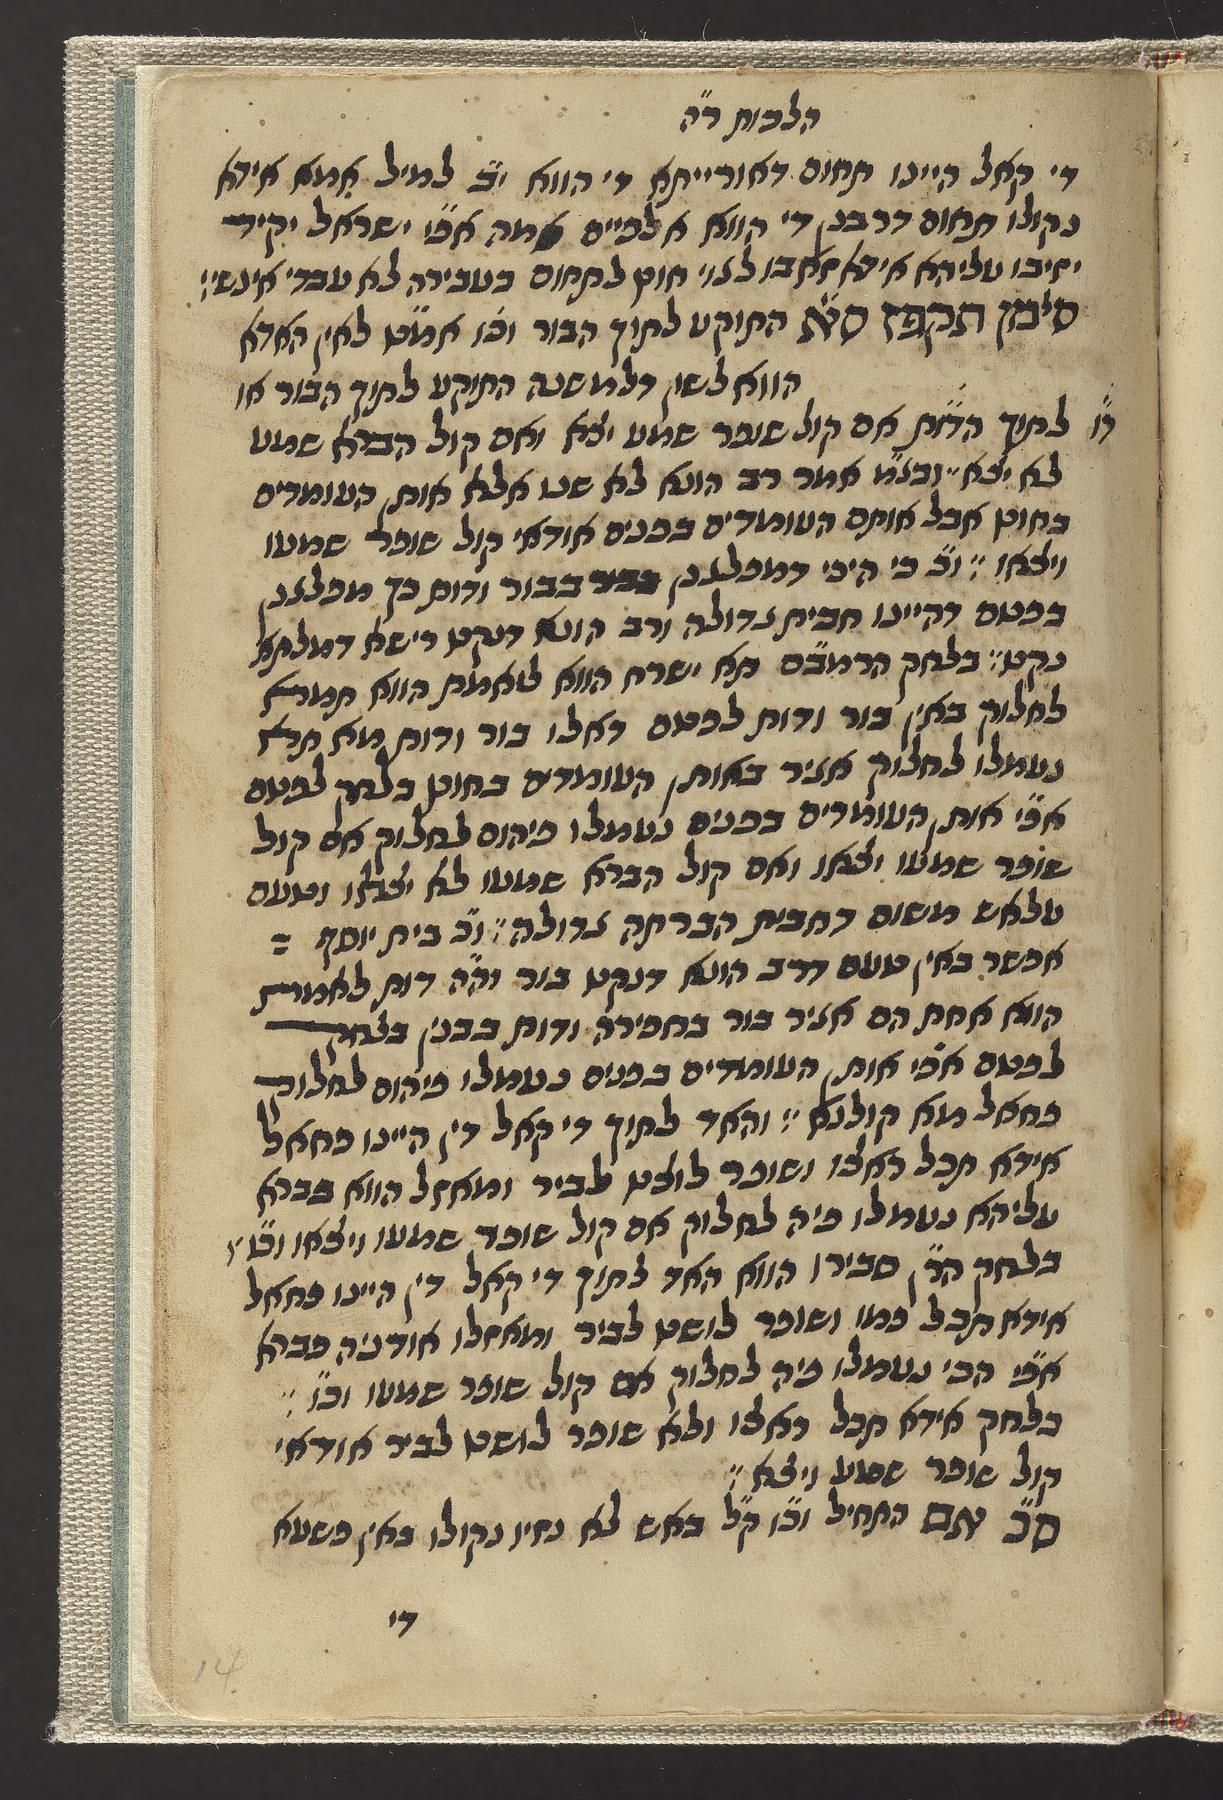 הלכות ר״ה
די קאל היינו תחום דאורייתא די הווא י״ב למיל אמא אידא
נקולו תחום דרבנן די הווא אלפיים אמה אפי׳ ישראל יקיד
יחיבו עליהא אידא לגוי חוץ לתחום בעבירה לא עבדי אינשי :
סימן תקפז ס״א התוקע לתוך הבור וכו׳ אמ״ט לאין האדא
הווא לשון דלמשנה התוקע לתוך הבור או
ר״ו
לתוך הדות אם קול שופר שמע יצא ואם קול הברא שמע
לא יצא ״ ובגמ׳ אמר רב הונא לא שנו אלא אותן העומדים
בחוץ אבל אותם העומדים בפנים אודאי קול שופר שמעו
ויצאו :״ וכ׳ כי היכי דמפלגנן בבור ודות כך מפלגנן
בפטס דהיינו חבית גדולה ורב הונא דנקט רישא דמלתא
נקט :״ בלחק הרמב״ם תא ישרח הווא לאמת הווא תמרא
לחלוק באין בור ודות לפטס דאלו בור ודות מא תרא
נעמלו לחלוק אגיר באותן העומדים בחוץ בלחק לפטס
אפי׳ אותן העומדים בפנים נעמלו פיהום לחלוק אם קול
שופר שמעו יצאו ואם קול הברא שמעו לא יצאו וטעם
עלאש משום דחבית הברתה גדולה :״ וכ׳ בית יוסף =
אפשר באין טעם דרב הונא דנקט בור וה״ה דות לאמרת
הווא אחת הם אגיר בור בחפירה ודות בבנין בלחק
לפטס אפי׳ אותן העומדים בפנים נעמלו פיהום לחלוק
כחאל מא קולנא :״ והאד לתוך די קאל דין היינו כחאל
אידא תכל ראצו ושופר לוצט לביר ומאזל הווא בברא
עליהא נעמלו פיה לחלוק אם קול שופר שמעו ויצאו וכו׳ :
בלחק הר״ן סבירו הווא האד לתוך די קאל דין היינו כחאל
אידא תכל פמו ושופר לושט לביר ומאזלו אודניה בברא
אפי׳ הכי נעמלו פיה לחלוק אם קול שופר שמעו וכו׳ :״
בלחק אידא תכל ראצו ולא שופר לושט לביר אודאי
קול שופר שמע ויצא :״
ס״ב אם התחיל וכו׳ ק״ל באש לא נחיו נקולו באין כשעא
די
14